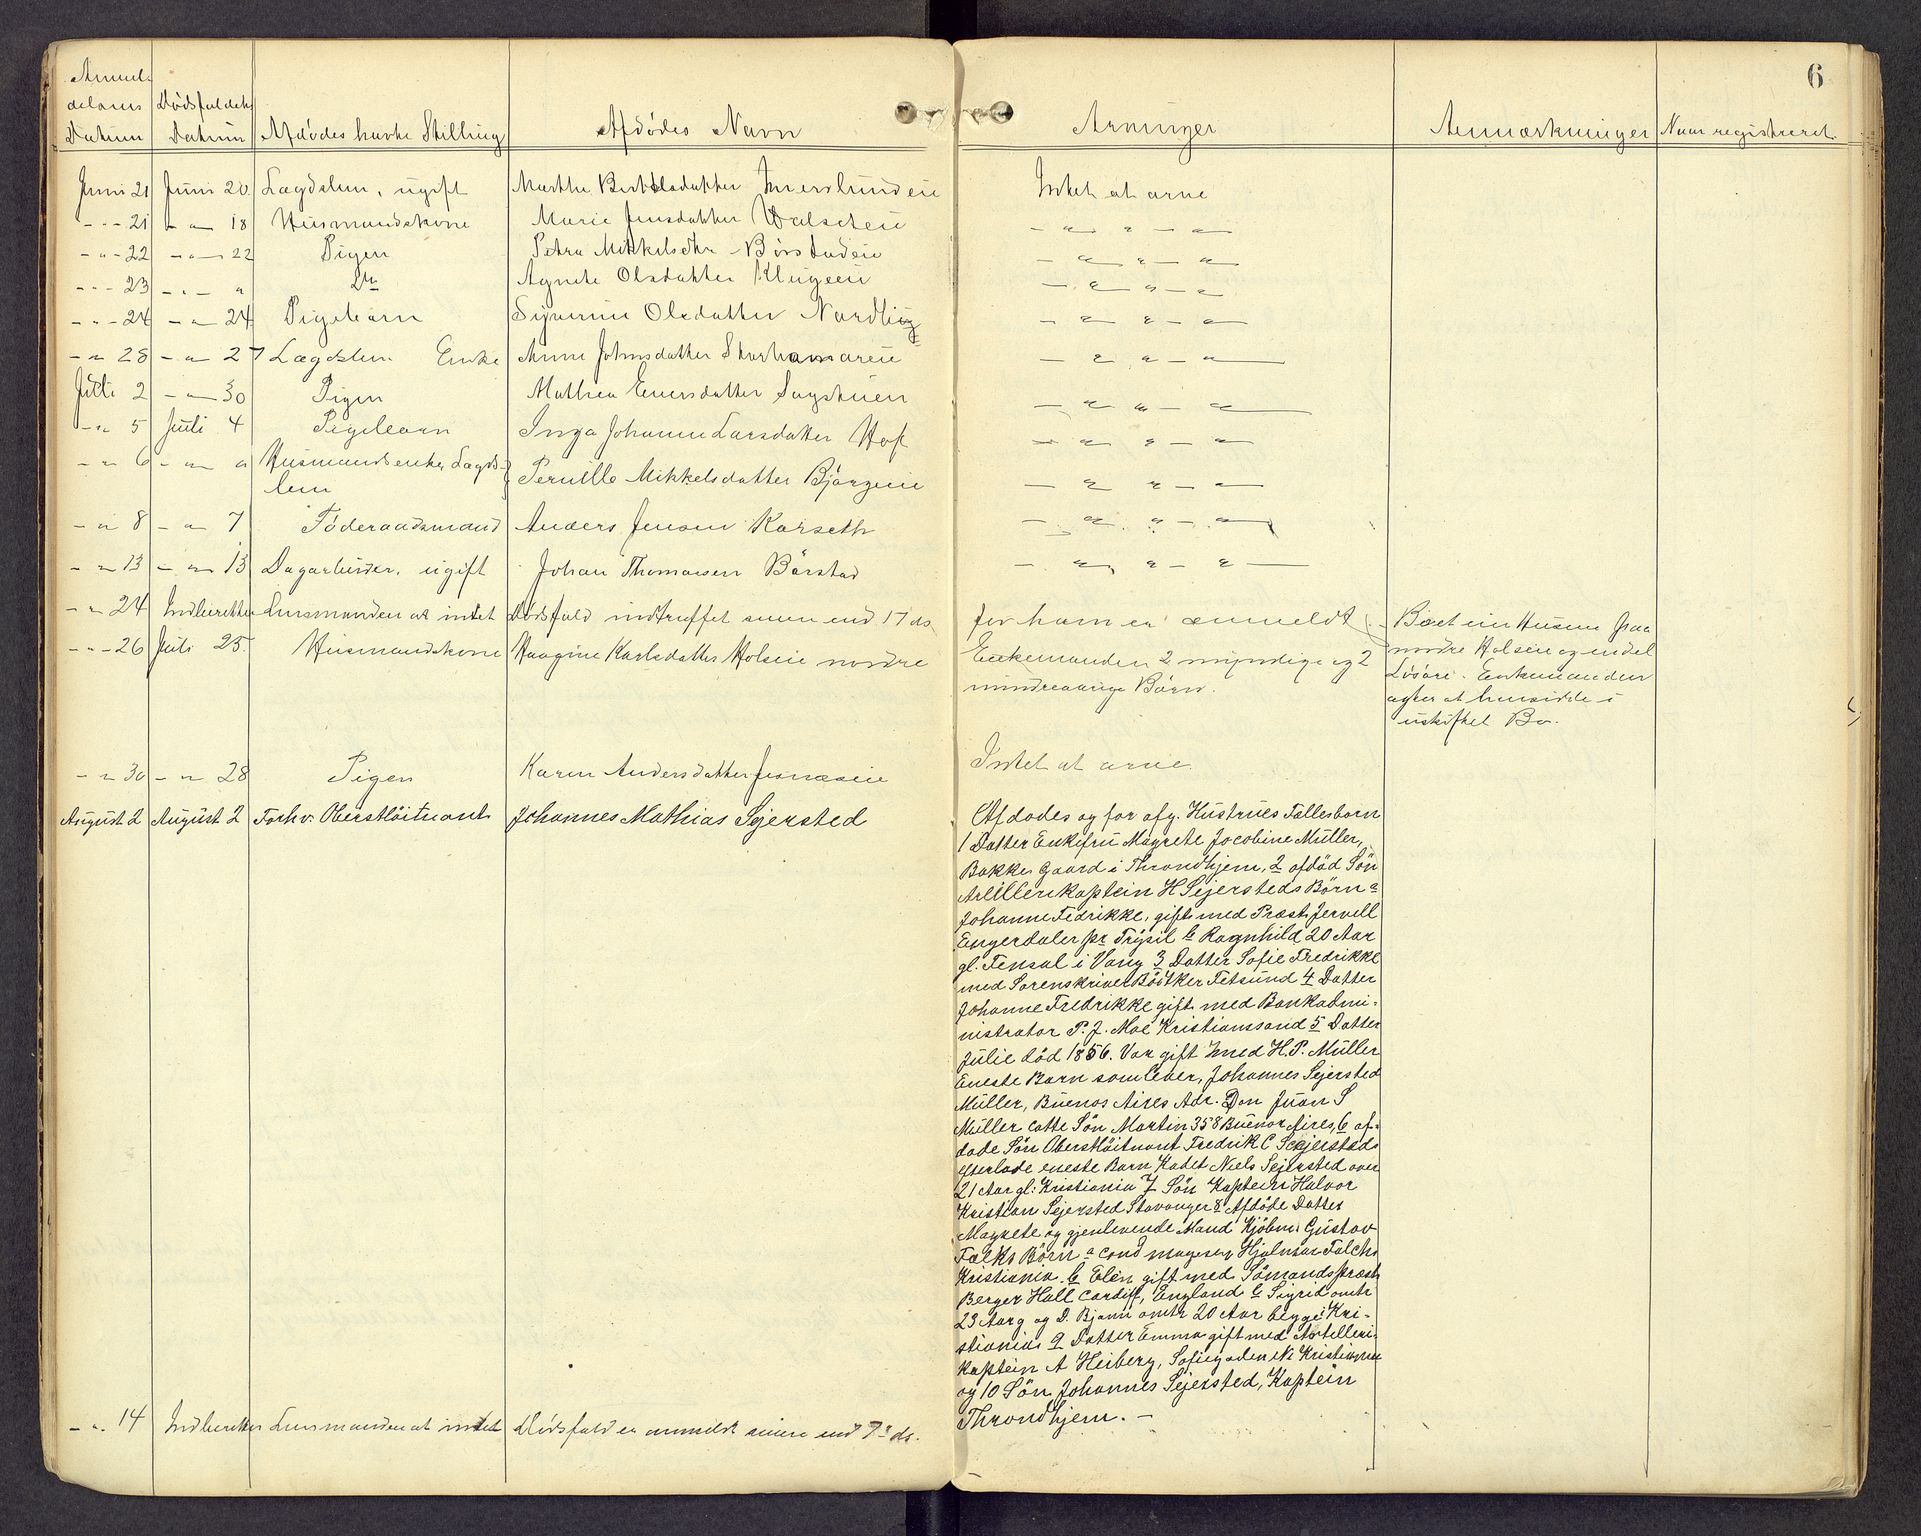 6
Anmel-
delsens Dødsfaldets
Datum Datum Afdödes havte Stilling Afdödes Navn Arvinger Anmærkninger Naar registreret.
Juni 21 Juni 20 Lægdslem, ugift Marthe Bertelsdatter Imerslundeie Intet at arve
- " - 21 - " - 18 Husmandskone Marie Jensdatter - " - " - " -
- " - 22 - " - 22 Pigen Petra Mikkelsdtr Börstadeie - " - " - " -
- " - 23 - " - " Do Agnete Olsdatter Klugeeie - " - " - " -
- " - 24 - " - 24 Pigebarn Olsdatter Nordlig - " - " - " -
- " 28 - " 27 Lægdslem Enke Anne Johnsdatter Storhamareie - " - " - " -
Juli 2 - " - 30 Pigen Mathea Evensdatter Sagstuen - " - " - " -
- " 5 Juli 4 Pigebarn Inga Johanne Larsdatter Hof - " - " - " -
- " 6 - " - " Husmandsenke, Lægds-
lem Pernille Mikkelsdatter Bjørgeeie - " - " - " -
- " 8 - " - 7 Föderaadsmand Anders Jensen Karseth - " - " - " -
- " 13 - " - 13 Dagarbeider, ugift Johan Thomasen Börstad - " - " - " -
- " 24 Indberetter Lensmanden at intet Dødsfald indtruffet siden end 17 ds.
for ham er anmeldt
- " - 26 Juli 25. Husmandskone Haagine Karlsdatter Holseie nordre
Enkemanden 2 myndige og 2
mindreaarige Börn.
Boet eier Husene paa
nordre Holseie og endel
Løsøre. Enkemanden
agter at hensidde i
uskiftet Bo.
- " 30 - " - 28 Pigen Karen Andersdatter Jesnæseie Intet at arve
August 2 August 2 Forhv. Oberstløitnant Johannes Mathias Sejersted
Afdödes og før afg. Hustrues Fællesbørn
1 Datter Enkefru Magrete Jocobine Müller,
Bakke Gaard i Throndhjem, 2 afdöd Sön
Artillerikaptein H Sejersteds Börn a
Johanne Fedrikke, gift med Præst Jervell
Engerdalen pr Trysil b Ragnhild 20 Aar
gl. Fensal i Vang 3 Datter Sofie Fredrikke
med Sorenskriver Bödtker Fetsund 4 Datter
Johanne Fredrikke gift med Bankadmi-
nistrator P. J. Moe Kristianssand 5 Datter
Julie död 1856. Var gift med H. P. Müller
Eneste Barn som lever, Johannes Sejersted
Müller, Buenos Aires Adr. Don Juan S
Müller catte Sön Martin 358 Buenor Aires, 6 af-
døde Søn Oberstløitnant Fredrik C Sejersteds
efterladte eneste Barn Kadet Niels Sejersted over
21 Aar gl: Kristiania 7 Sön Kaptein Halvor
Kristian Sejersted Stavanger 8 Afdöde Datter
Magrete og gjenlevende Mand Kjöbm. Gustav
Falks Börn a cand mag Hjalmar Falch
Kristiania. b Elen gift med Sömandspræst
Berger Hall Cardiff, England c Sigrid omtr
23 Aar g og D. Bjarn omtr 20 Aar begge Kri-
stiania 9 Datter Emma gift med Artilleri-
kaptein A Heiberg, Sofiegaden Kristiania
og 10 Sön Johannes Sejersted, Kaptein
Throndhjem. -
- " 14 Indberetter Lensmanden at intet Dødsfald er anmeldt siden end 7de ds.